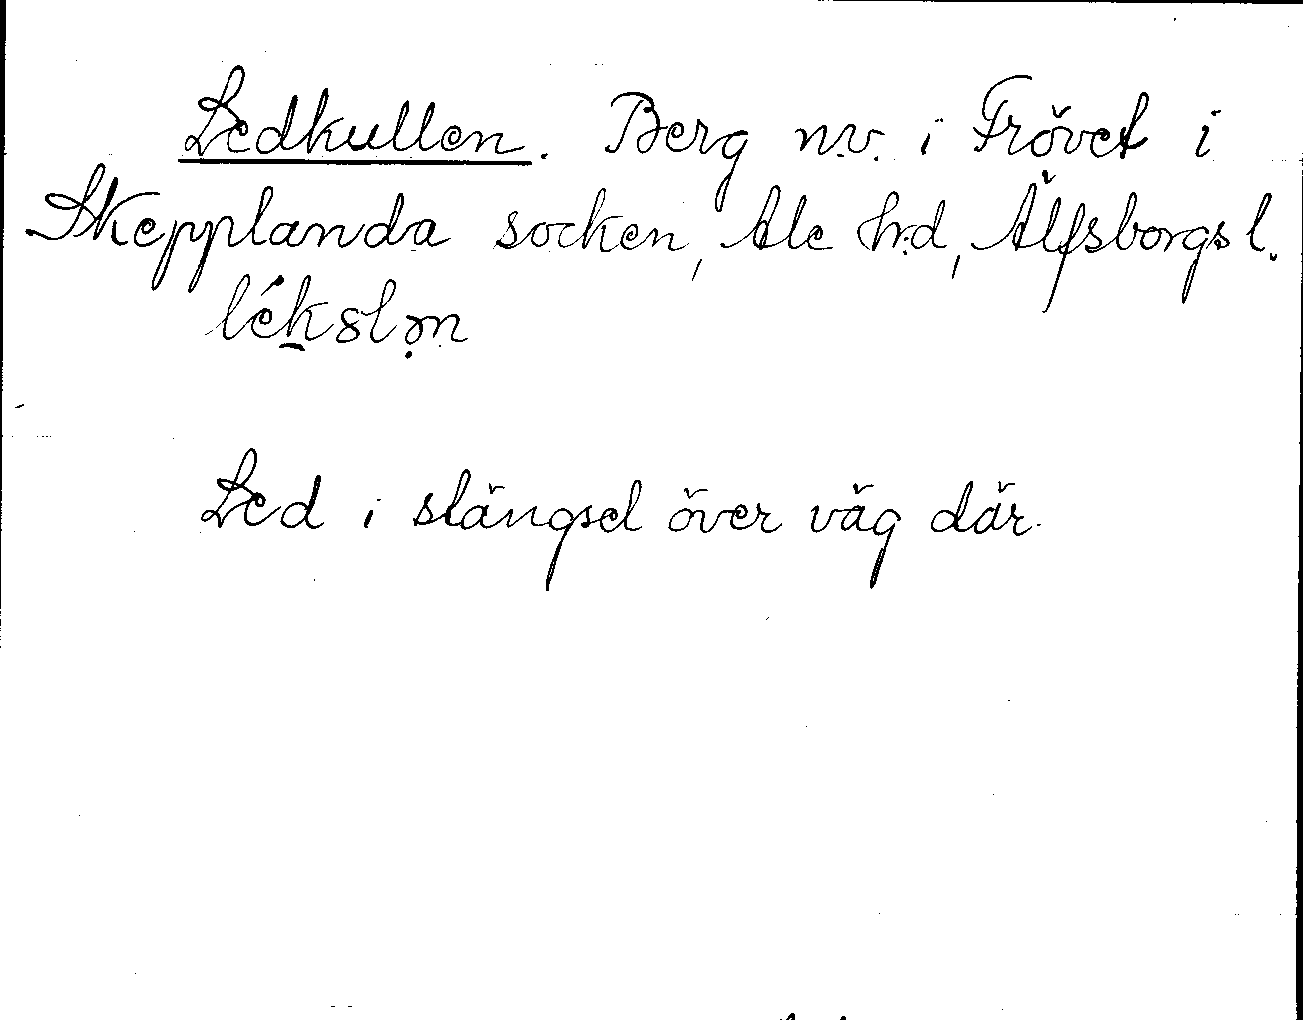 Ledkullen. Berg n.v. i Frövet i
Skepplanda socken, Ale h:d, Älfsborgs l.
léksl̥ən
Led i stängsel över väg där.